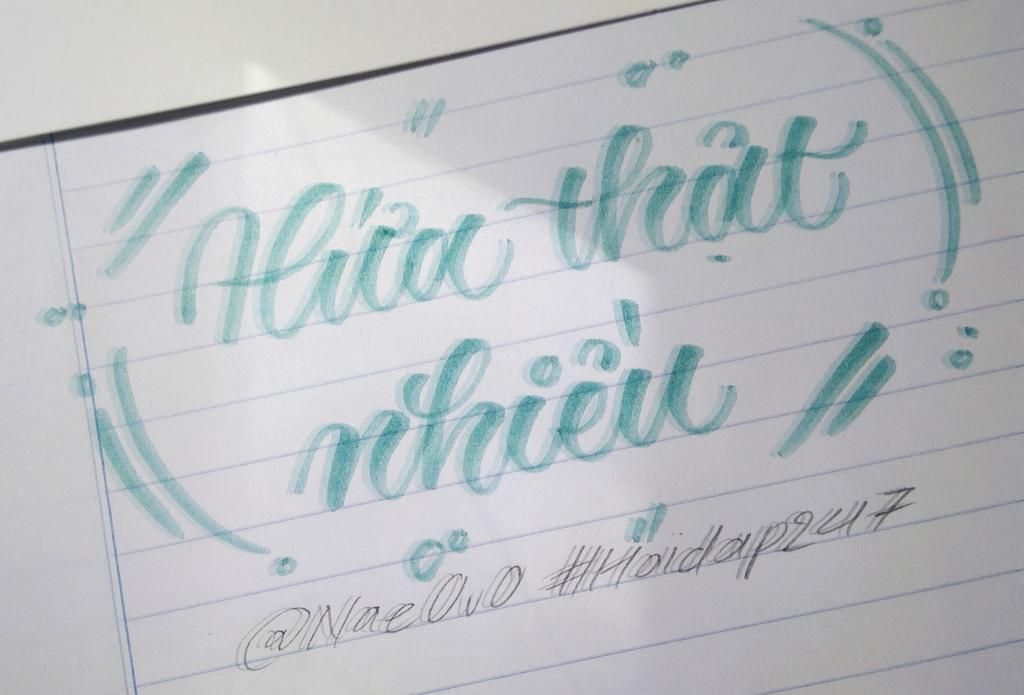 Hứa thật
nhiều
@Nae0v0 #Hoidap247